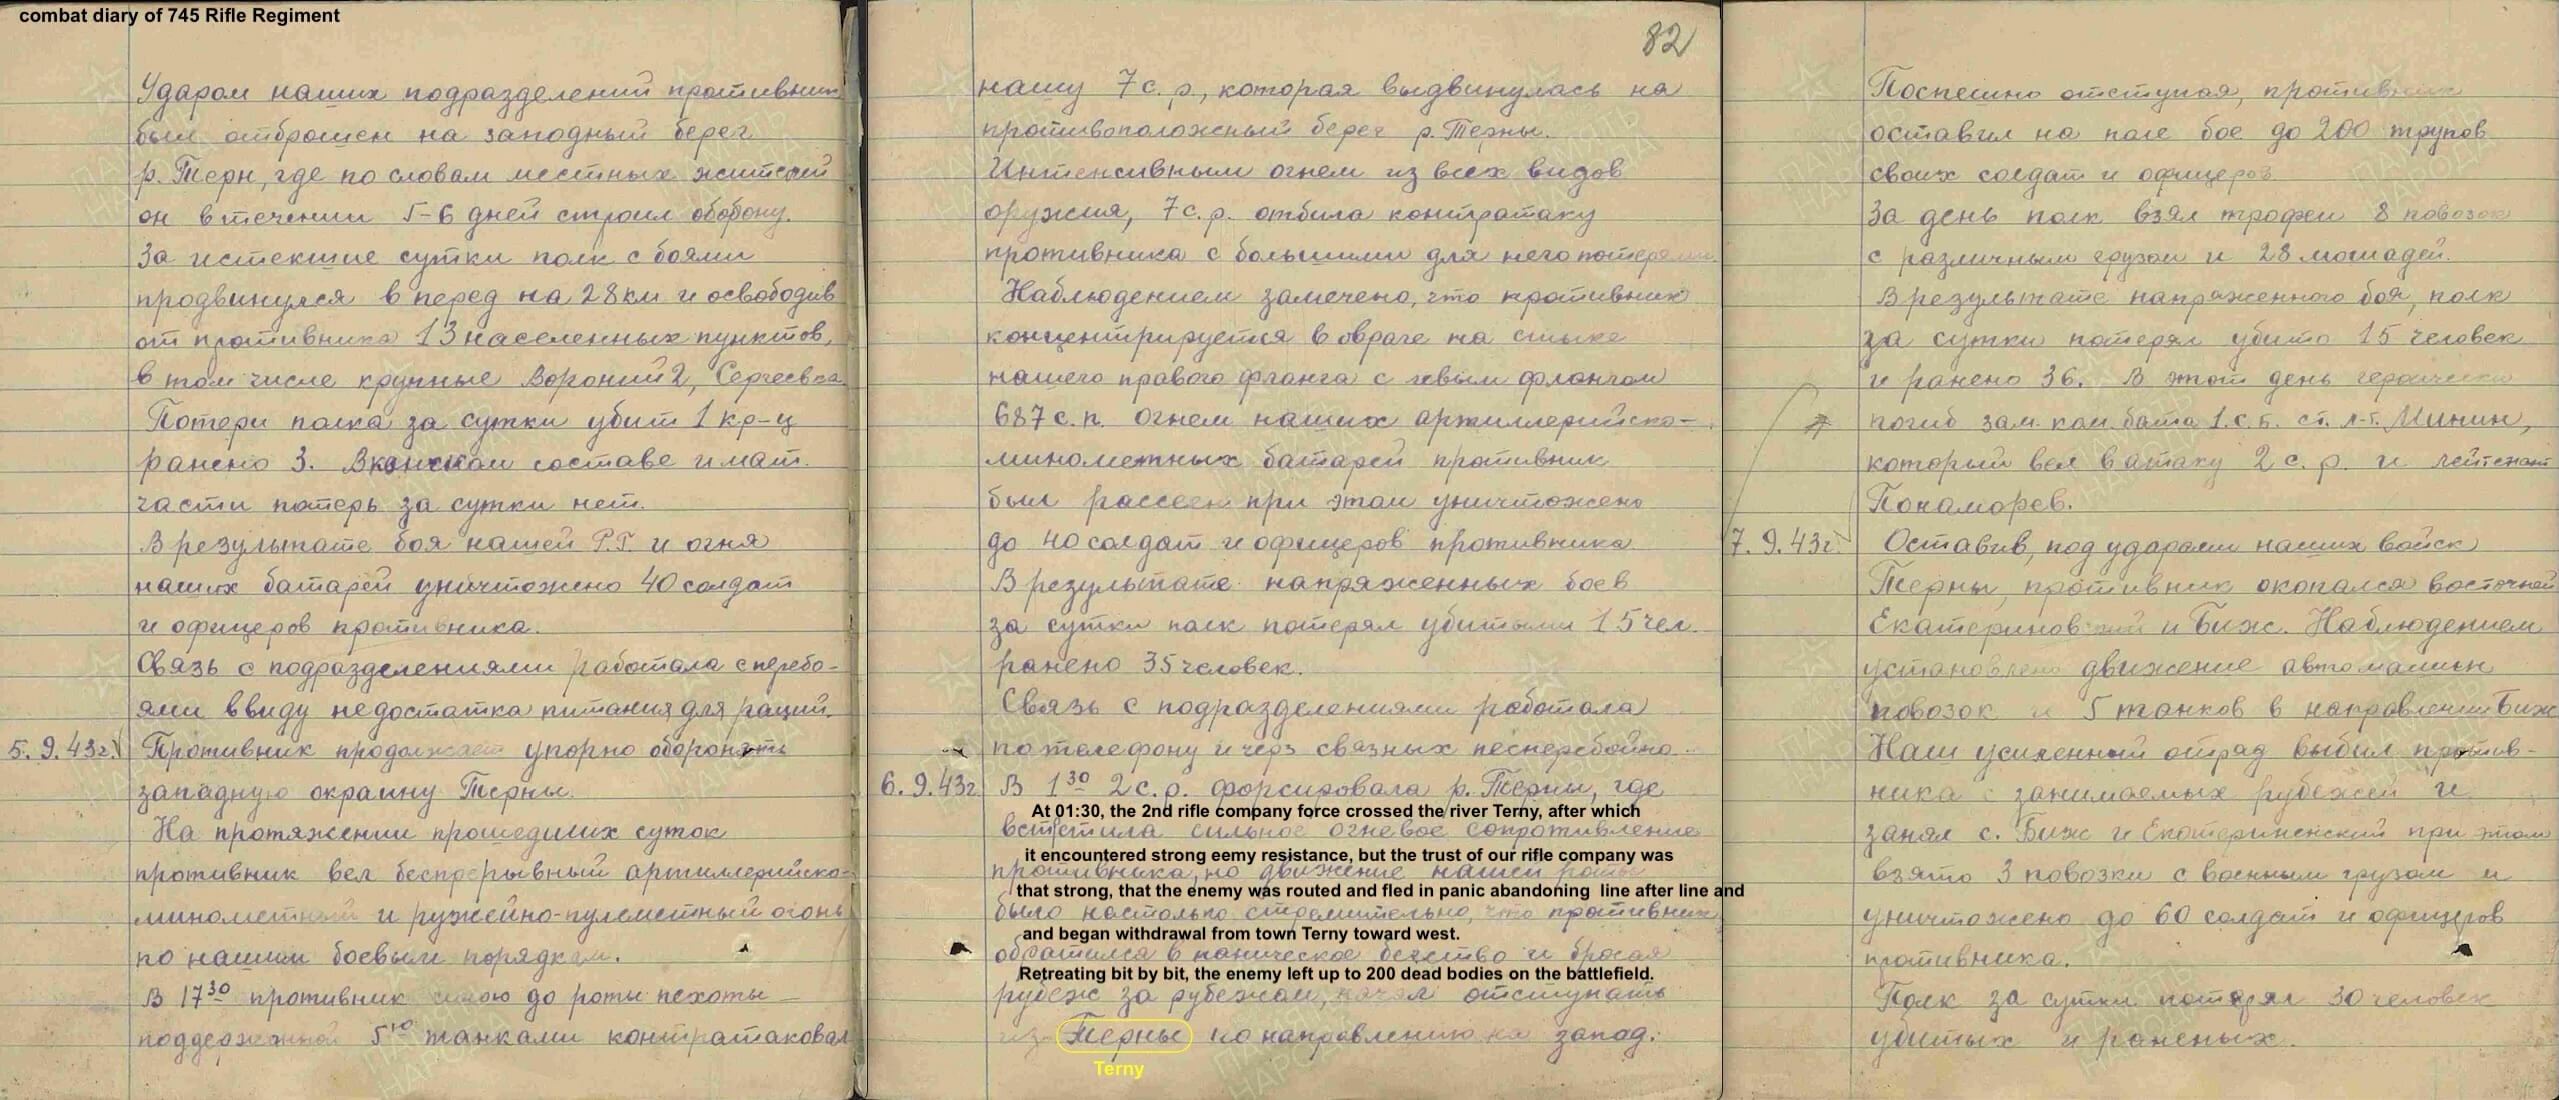 combat diary of 745 Rifle Regiment
Ударом наших подразделений противник
был отброшен на западный берег
р. Терн, где по словам местных жителей
он в течении 5-6 дней строил обобону.
За истекшие сутки полк с боями
продвинулся в перед на 28 км и освободив
от противника 13 населенных пунктов,
в том числе крупные Вороний 2, Сергеевка
Потери полка за сутки убит 1 кр-ц
ранено 3. В конском составе и мат.
части потерь за сутки нет.
В результате боя нашей Р.Г. и огня
наших батарей уничтожено 40 солдат
и офицеров противника.
Связь с подразделениями работала с перебо-
ями ввиду недостатка питания для раций.
5.9.43г. Противник продолжает упорно оборонять
западную окраину Терны.
На протяжении прошедших суток
противник вел беспрерывный артиллерийско-
минометный и ружейно-пулеметный огонь
по нашим боевым порядкам.
В 17 30 противник силою до роты пехоты
поддержанной 5ю танками контратаковал
82
нашу 7 с.р., которая выдвинулась на
противоположный берег р. Терны.
Интенсивным огнем из всех видов
оружия, 7 с.р. отбила контратаку
противника с большими для него потерями.
Наблюдением замечено, что противник
концентрируется в овраге на стыке
нашего правого фланга с левым флангом
687 с.п. Огнем наших артиллерийско-
минометных батарей противник
был рассеен при этом уничтожено
до 40 солдат и офицеров противника.
В результате напряженных боев
за сутки полк потерял убитыми 15 чел.
ранено 35 человек.
Связь с подразделениями работала
по телефону и через связных бесперебойно.
6.9.43г. В 1 30 2 с.р. форсировала р. Терны, где
At 01:30, the 2nd rifle company force crossed the river Terny, after which
встетила сильное огневое сопротивление
it encountered strong eemy resistance, but the trust of our rifle company was
противника, но движение нашей роты
that strong, that the enemy was routed and fled in panic abandoning line after line and
было настолько стремительно, что противник
and began withdrawal from town Terny toward west.
обратился в паническое бегство и бросая
Retreating bit by bit, the enemy left up to 200 dead bodies on the battlefield.
рубеж за рубежом, начал отступать
из Терны по направлению на запад.
Terny
Поспешно отступая, противник
оставил на поле бое до 200 трупов
своих солдат и офицеров.
За день полк взял трофеи 8 повозок
с различным грузом и 28 лошадей.
В результате напряженного боя, полк
за сутки потерял убито 15 человек
и ранено 36. В этот день героически
погиб зам. ком. бата 1 с.б. ст. л-т. Минин,
который вел в атаку 2 с.р. и лейтенант
Понаморев.
7.9.43г. Оставив, под ударами наших войск
Терны, противник окопался восточней
и Биж. Наблюдением
установлено движение автомашин
повозок и 5 танков в направлении Биж
Наш усиленный отряд выбил против-
ника с занимаемых рубежей и
занял с. Биж и Екатериненский при этом
взято 3 повозки с военным грузом и
уничтожено до 60 солдат и офицеров
противника.
Полк за сутки потерял 30 человек
убитых и раненых.